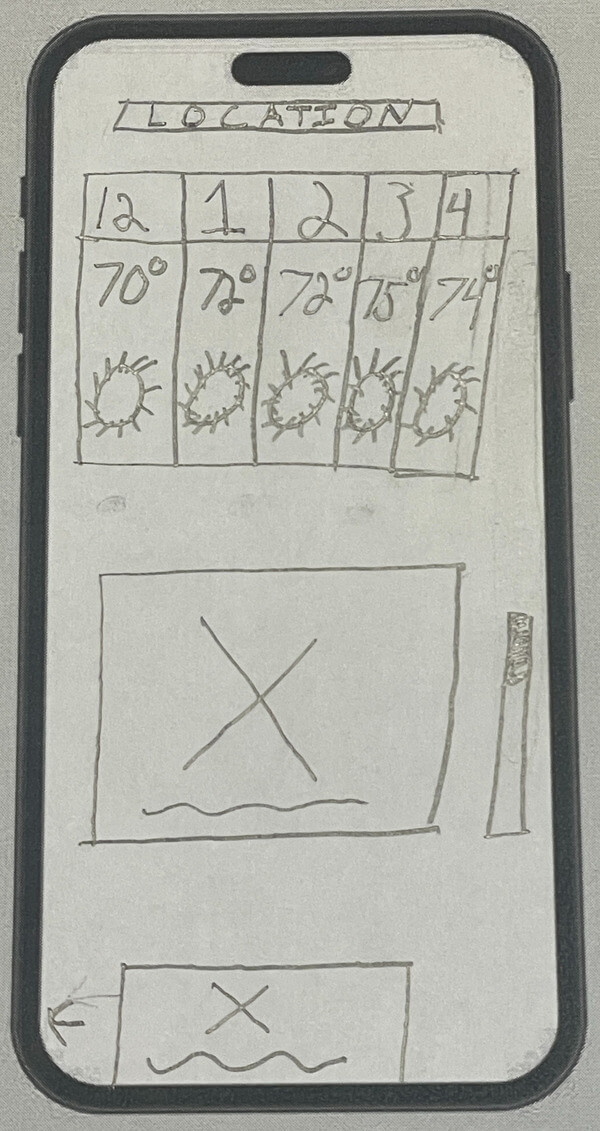 LOCATION
12 1 2 3 4
70° 72° 72° 75° 74°